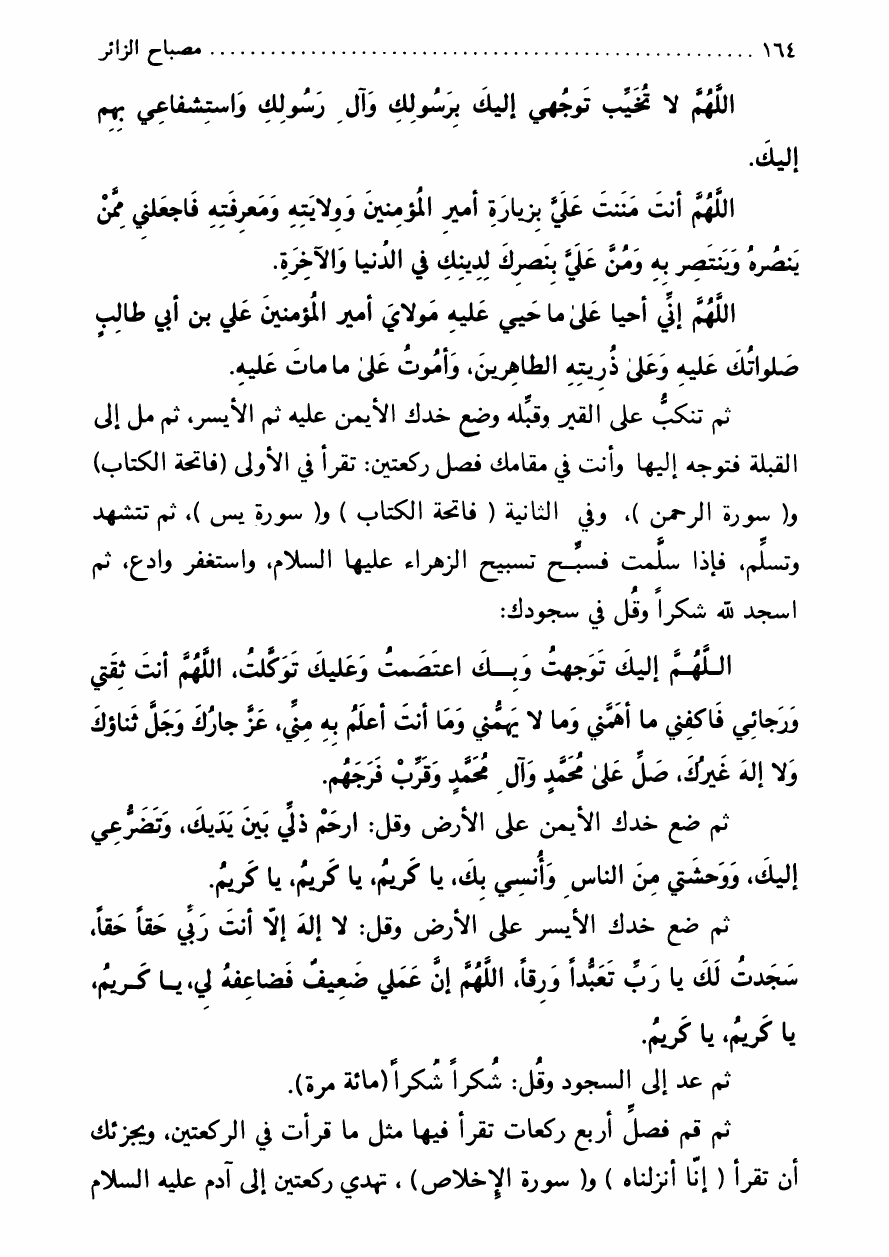 ١٦٤ ...................................................... مصباح الزائر
اللَّهُمَّ لا تُخَيِّب تَوجُهي إليكَ بِرَسُولِكِ وَآلِ رَسُولِكِ وَاستِشفاعِي بِهِم
إليكَ.
اللَّهُمَّ أنتَ مَنَنتَ عَلَيَّ بِزيارَةِ أميرِ المُؤمنينَ وَوِلايَتِهِ وَمَعرِفَتِهِ فَاجعَلنِي مِمَّنْ
يَنصُرهُ وَيَنتَصِر بِهِ وَمُنَّ عَلَيَّ بِنَصرِكَ لِدِينِكِ في الدُنيا وَالآخِرَةِ.
اللَّهُمَّ إنّي أحيا عَلىٰ ما حَييَ عَليهِ مَولايَ أمير المُؤمنينَ عَلي بن أبي طالِبٍ
صَلواتُكَ عَليهِ وَعَلىٰ ذُرِيتِهِ الطاهِرينَ، وَأمُوتُ عَلىٰ ما ماتَ عَليهِ.
ثم تنكبُّ على القبر وقبِّله وضع خدك الأيمن عليه ثم الأيسر، ثم مل إلى
القبلة فتوجه إليها وأنت في مقامك فصل ركعتين: تقرأ في الأولى (فاتحة الكتاب)
و( سورة الرحمن )، وفي الثانية ( فاتحة الكتاب ) و( سورة يس )، ثم تتشهد
وتسلِّم، فإذا سلَّمت فسبِّح تسبيح الزهراء عليها السلام، واستغفر وادع، ثم
اسجد لله شكراً وقُل في سجودك:
اللَّهُمَّ إليكَ تَوَجهتُ وَبِكَ اعتَصَمتُ وَعَليكَ تَوَكَّلتُ، اللَّهُمَّ أنتَ ثِقَتي
وَرَجائي فَاكفِني ما أهَمَّني وَما لا يَهِمُّني وَمَا أنتَ أعلَمُ بِهِ مِنِّي، عَزَّ جارُكَ وَجَلَّ ثَناؤكَ
وَلا إلهَ غَيرُكَ، صَلِّ عَلىٰ مُحَمَّدٍ وَآلِ مُحَمَّدٍ وَقَرِّبْ فَرَجَهُم.
ثم ضع خدك الأيمن على الأرض وقل: ارحَمْ ذلّي بَينَ يَدَيكَ، وَتَضَرُّعِي
إليكَ، وَوَحشَتي مِنَ الناسِ وَأُنسِي بِكَ، يا كَريمُ، يا كَريمُ، يا كَريمُ.
ثم ضع خدك الأيسر على الأرض وقل: لا إلهَ إلّا أنتَ رَبِّي حَقاً حَقاً،
سَجَدتُ لَكَ يا رَبِّ تَعَبُّداً وَرِقاً، اللَّهُمَّ إنَّ عَمَلي ضَعِيفٌ فَضاعِفهُ لِي، يا كَريمُ،
يا كَريمُ، يا كَريمُ.
ثم عد إلى السجود وقُل: شُكراً شُكراً (مائة مرة).
ثم قم فصلِّ أربع ركعات تقرأ فيها مثل ما قرأت في الركعتين، ويجزئك
أن تقرأ ( إنّا أنزلناه ) و( سورة الإخلاص) ، تهدي ركعتين إلى آدم عليه السلام